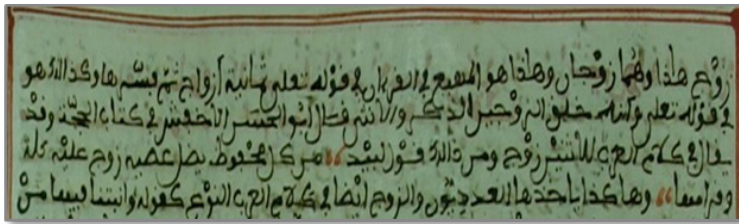 زوج هذا وهما زوجان وهذا هو المتبع في القرءان في قوله تعلى ثمانية أزواج ثم فسرها وكذالك هو
في قوله تعلى وأنه خلق الزوجين الذكر والأنثى قال أبو الحسن الأخفش في كتاب الحجة وقد
يقال في كلام العرب للاثنين زوج ومن ذالك قول لبيد من كل محفوف يظل عصيه زوج عليه كلة
وقرامها وهاكذا يأخذها العدديون والزوج أيضا في كلام العرب النوع كقوله وأنبتنا فيها من